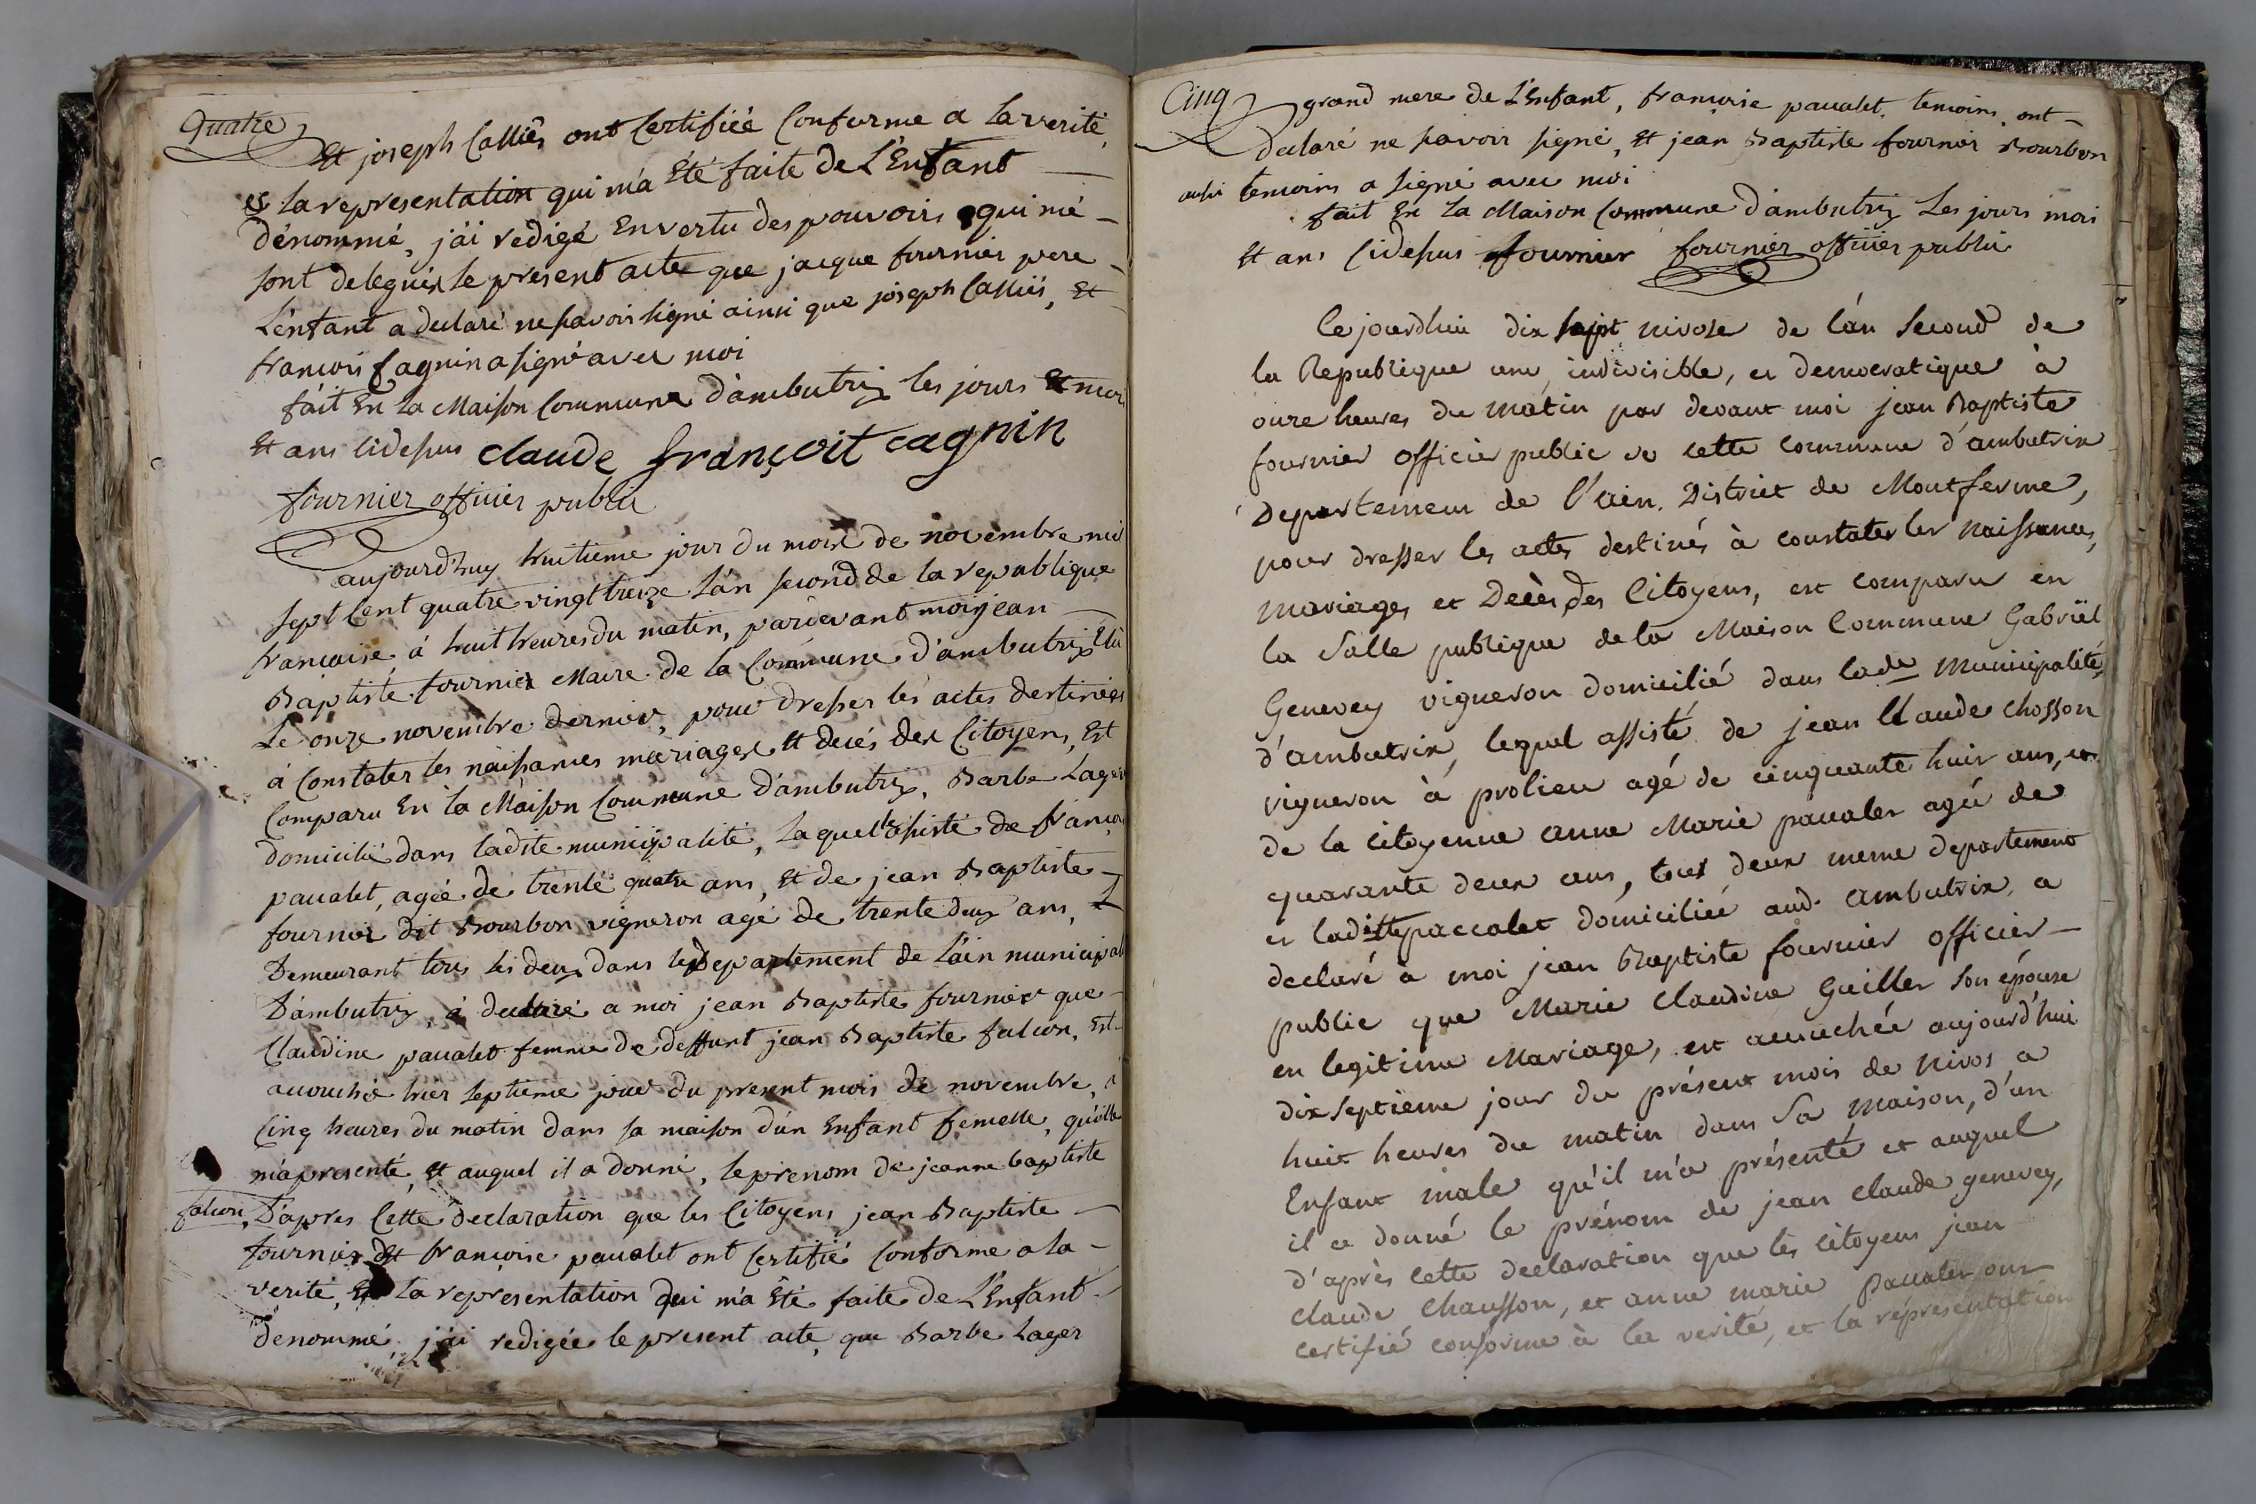 Quatre
Et joseph Calliés ont Certifiéé Conforme a la verité,
et la representation qui m'a Eté faite de L'Enfant
dénommé, j'ai redigé En vertu des pouvoirs qui mé
sont delegués le présent acte que jacque fournier pere
L'énfant a declaré ne savoir signé ainsi que joseph Calliés, Et
françois Cagnin a signé avec moi
fáit En La Maison Commune D'ambutrix les jours Et mois
Et ans cidessus claude françoit cagnin
fournier officier public
aujourd'huy huitieme jour du mois de novembre mil
sept Cent quatre vingt treize L'an second de la republique
française, á huit heures du matin, pardevant moi jean
Baptiste fournier Maire de la Commune d'ambutrix Elu
Le onze novembre dernier, pour dresser les actes destinées
á Constater les náissances mariages et decés des Citoyens, Est
Comparu En la Máison Commune D'ambutrix, Barbe Lager
domicilié dans ladite municipalité, Laquelle assisté de françoise
pacalet, agéé de trente quatre ans, Et de jean Baptiste
fournier dit Bourbon vigneron agé de trente deux ans,
Demeurant tous les deux dans le Departement de L'ain municipal
D'ambutrix, á declaré a moi jean Baptiste fournier que
Claudine pacalet femme de deffunt jean Baptiste falcon, Est
accouchée hier septieme jour du present mois de novembre, á
Cinq heures du matin dans sa maison d'un Enfant femelle, qu'elle
m'a presenté, Et auquel il a donné, le prenom de jeanne baptiste
falcon, D'apres Cette declaration que les Citoyens jean Baptiste
fournier Et françoise pacalet ont Certifié Conforme a la
verité, Et La representation qui m'a Eté faite de L'Enfant
dénommé, j'ai redigéé le present acte, que Barbe Lager
Cinq
grand mere de L'Enfant, françoise pacalet, temoins, ont
declaré ne savoir signé, Et jean Baptiste fournier Bourbon
aussi temoins a signé avec moi
fait En La Maison Commune D'ambutrix Les jours mois
Et ans Cidessus fournier fournier officier public
Cejourdhui dix sept nivose de l'an second de
la Republique une, indivisible, et democratique à
onze heures du matin par devant moi jean Baptiste
fournier officier public de cette commune d'ambutrix
Departement de l'ain. District de Montferme,
pour dresser les actes destinés à constater les naissances,
mariages et Décès des Citoyens, est comparu en
la Salle publique de la Maison Commune Gabriël
Genevey vigneron domicilié dans lade municipalité,
d'ambutrix, lequel assisté de jean Claude Chosson
vigneron à prolieu agé de cinquante huit ans, et
de la citoyenne anne Marie pacalet agée de
quarante deux ans, tous deux meme departement
et laditte paccalet domiciliée aud. ambutrix, a
declaré à moi jean Baptiste fournier officier
public que Marie Claudine Guillet son épouse
en legitime Mariage, est accouchée aujourd'hui
dix septieme jour du présent mois de nivos, a
huit heures du matin dans Sa maison, d'un
Enfant male qu'il m'a présenté et auquel
il a donné le prénom de jean claude genevey,
d'après cette declaration que les citoyens jean
claude Chausson, et anne marie pacalet ont
certifié conforme à la verité, et la réprésentation